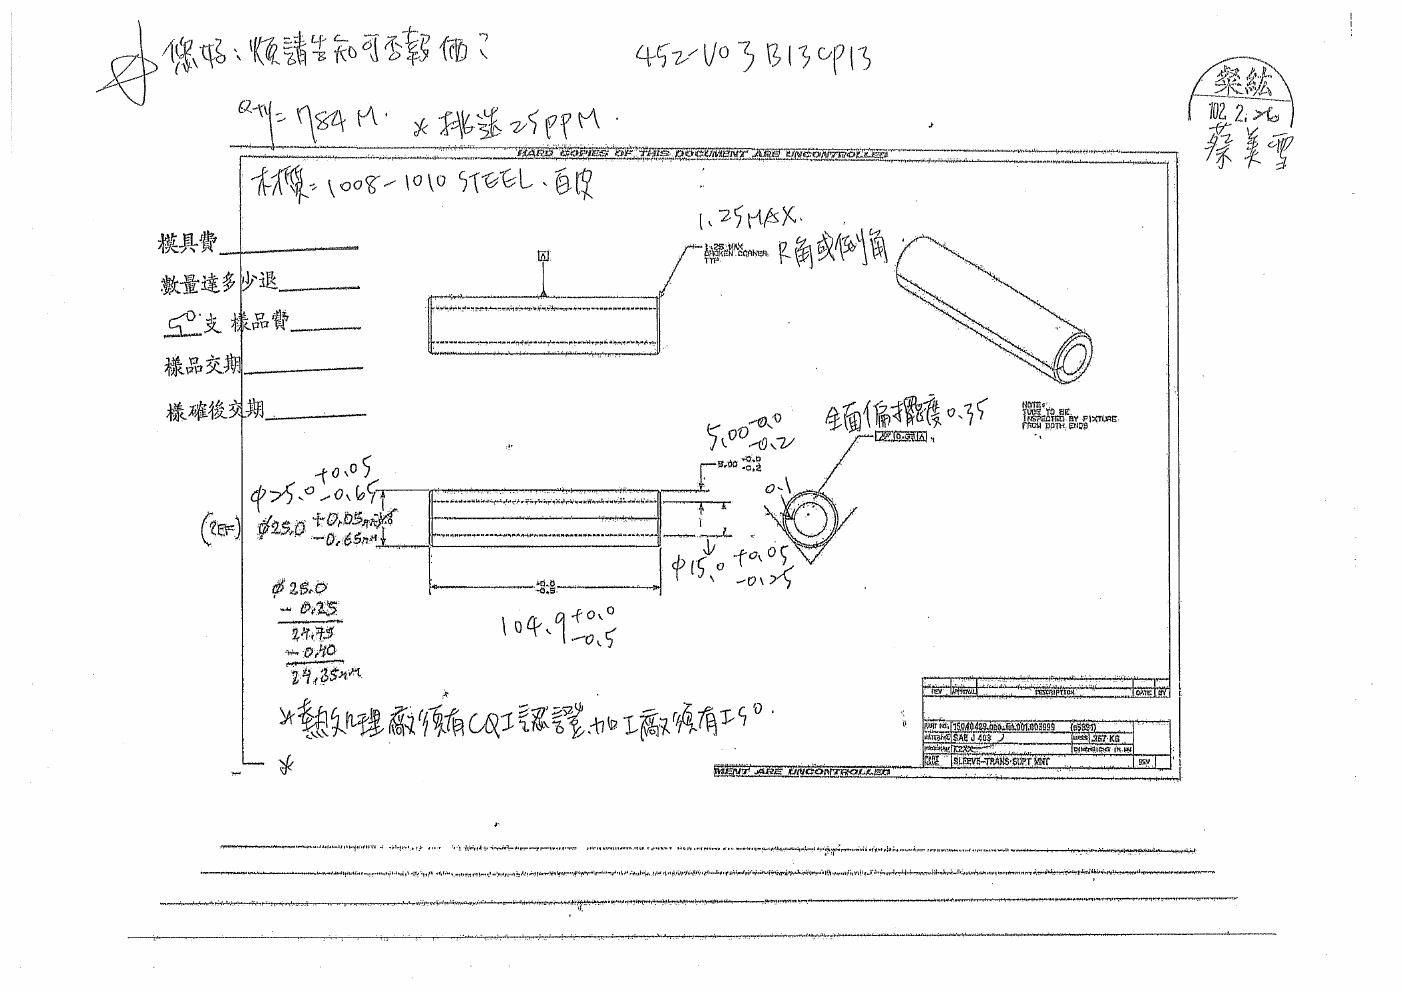 您好:煩請告知可否報價?
452-V03B13CP13
Qty=784M. *挑選25PPM.
粲紘
102.2.26
蔡美雪
HARD COPIES OF THIS DOCUMENT ARE UNCONTROLLED
材質=1008-1010 STEEL、百皮
模具費
數量達多少退
50支 樣品費
樣品交期
樣確後交期
1.25MAX.
1.25 MAX
BROKEN CORNER
TYP
R角或倒角
A
NOTE:
TUBE TO BE
INSPECTED BY FIXTURE
FROM BOTH ENDS
全面偏擺度0.35
0.35 A
5.00 -0.0 -0.2
5.00 -0.0 -0.2
0.1
φ25.0 +0.05 -0.65
(REF) φ25.0 +0.05mm -0.65mm
φ15.0 +0.05 -0.25
+0.0 -0.5
104.9 +0.0 -0.5
φ25.0
- 0.25
24.75
- 0.40
24.35mm
*熱処理廠須有CQI認證,加工廠須有ISO.
*
REV APPROVAL DESCRIPTION DATE BY
PART NO.
MATERIAL SAE J 403 MASS .367 KG
DIMENSIONS IN MM
PART NAME SLEEVE-TRANS SUPT MNT REV
MENT ARE UNCONTROLLED